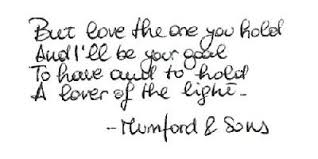 But love the one you hold
And I'll be your goal
To have and to hold
A lover of the light-
-Mumford & Sons